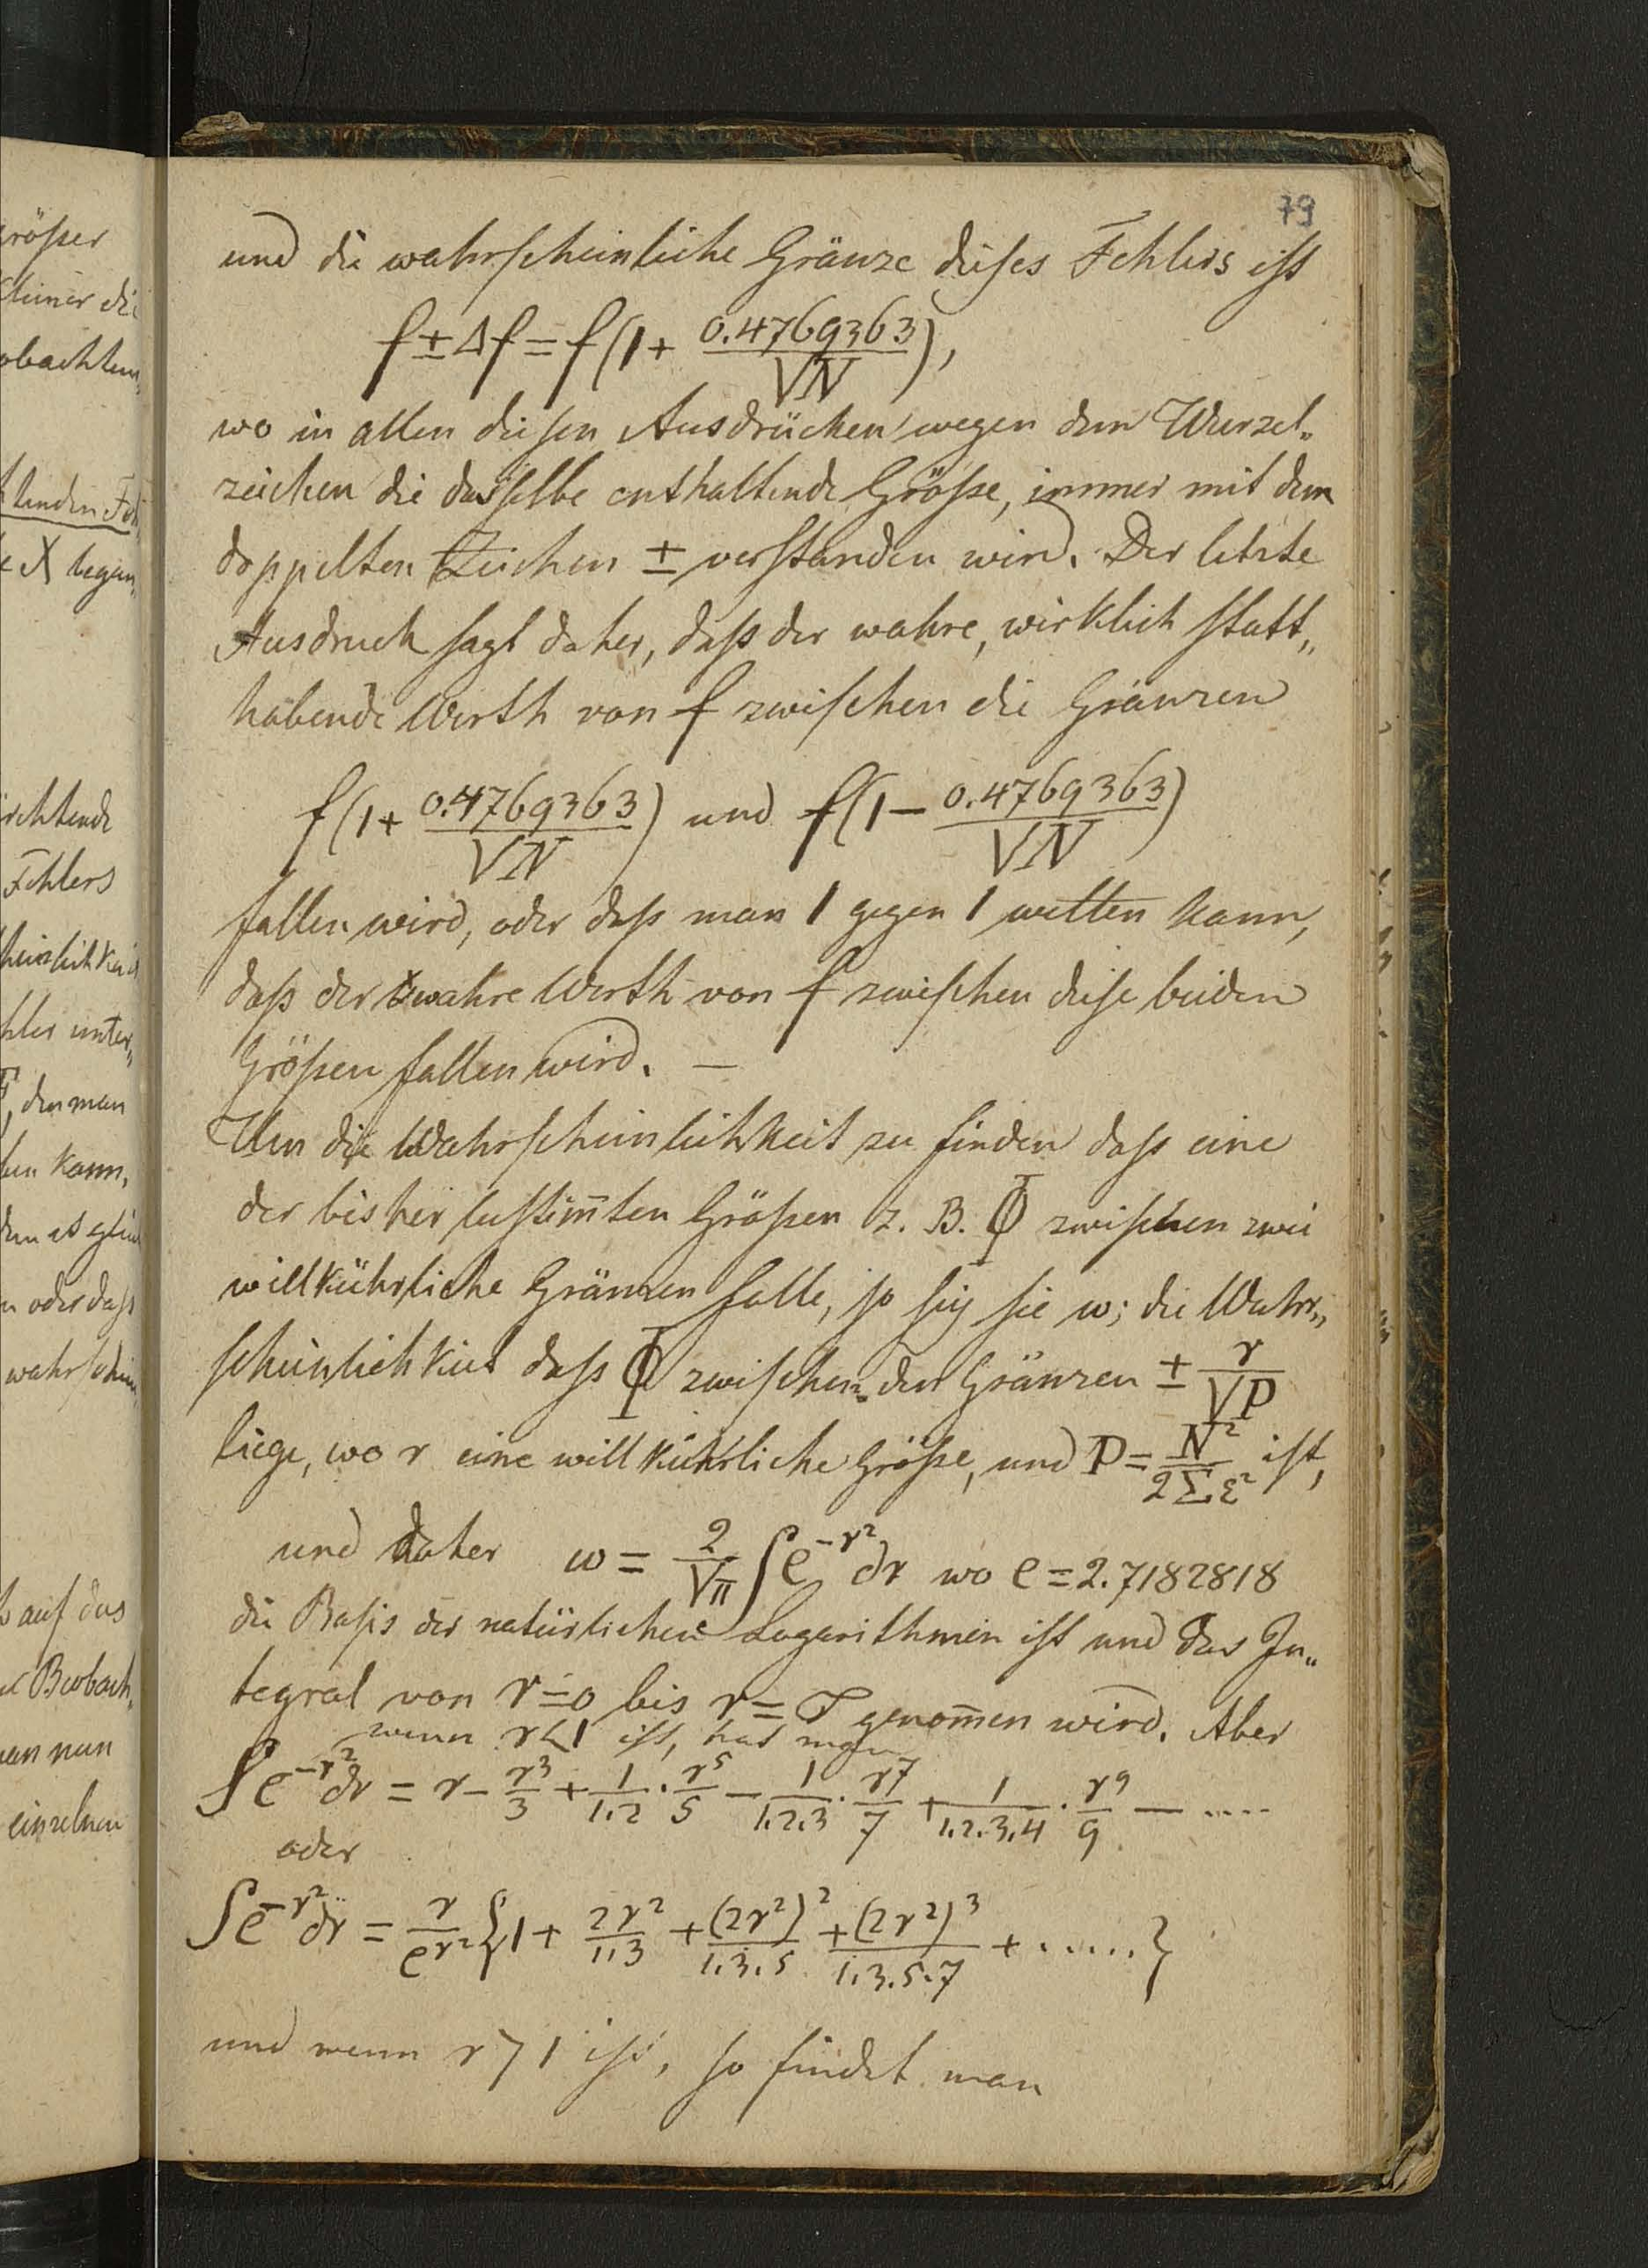 79
und die wahrscheinliche Gränze dieses Fehlers ist
f ± Δf = f(1 + 0.4769363/√N),
wo in allen diesen Ausdrücken wegen dem Wurzel„
zeichen die dasselbe enthaltende Größe, immer mit dem
doppelten Zeichen ± verstanden wird. Der letzte
Ausdruck sagt daher, daß der wahre, wirklich statt„
habende Werth von f zwischen die Gränzen
f(1 + 0.4769363/√N) und f(1 − 0.4769363/√N)
fallen wird, oder daß man 1 gegen 1 wetten kann,
daß der wahre Werth von f zwischen diese beiden
Größen fallen wird. —
Um die Wahrscheinlichkeit zu finden daß eine
der bisher bestim̅ten Größen z. B. Φ zwischen zwei
willkührliche Gränzen falle, so sey sie w; die Wahr„
scheinlichkeit daß Φ zwischen den Gränzen ± r/√P
liege, wo r eine willkührliche Größe, und P = N²/2Σε² ist,
und daher w = 2/√π ∫e^{-r²}dr wo e = 2.7182818
die Basis der natürlichen Logarithmen ist und das In„
tegral von r=0 bis r= genom̅en wird. Aber
wenn r<1 ist, hat man
∫e^{-r²}dr = r − r³/3 + 1/1.2 · r⁵/5 − 1/1.2.3 · r⁷/7 + 1/1.2.3.4 · r⁹/9 − .....
oder
∫e^{-r²}dr = r/e^{r²} {1 + 2r²/1.3 + (2r²)²/1.3.5 + (2r²)³/1.3.5.7 + ......}
und wenn r>1 ist, so findet man